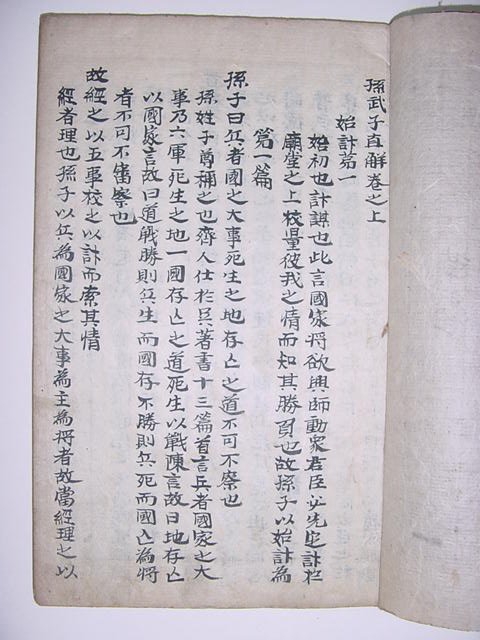 孫武子直解卷之上
始計第一
始初也計謀也此言國家將欲興師動衆君臣必先定計於
廟堂之上校量彼我之情而知其勝負也故孫子以始計為
第一篇
孫子曰兵者國之大事死生之地存亡之道不可不察也
孫姓子尊稱之也齊人仕於吳著書十三篇首言兵者國家之大
事乃六軍死生之地一國存亡之道死生以戰陳言故曰地存亡
以國家言故曰道戰勝則兵生而國存不勝則兵死而國亡為將
者不可不審察也
故經之以五事校之以計而索其情
經者理也孫子以兵為國家之大事為主為將者故當經理之以